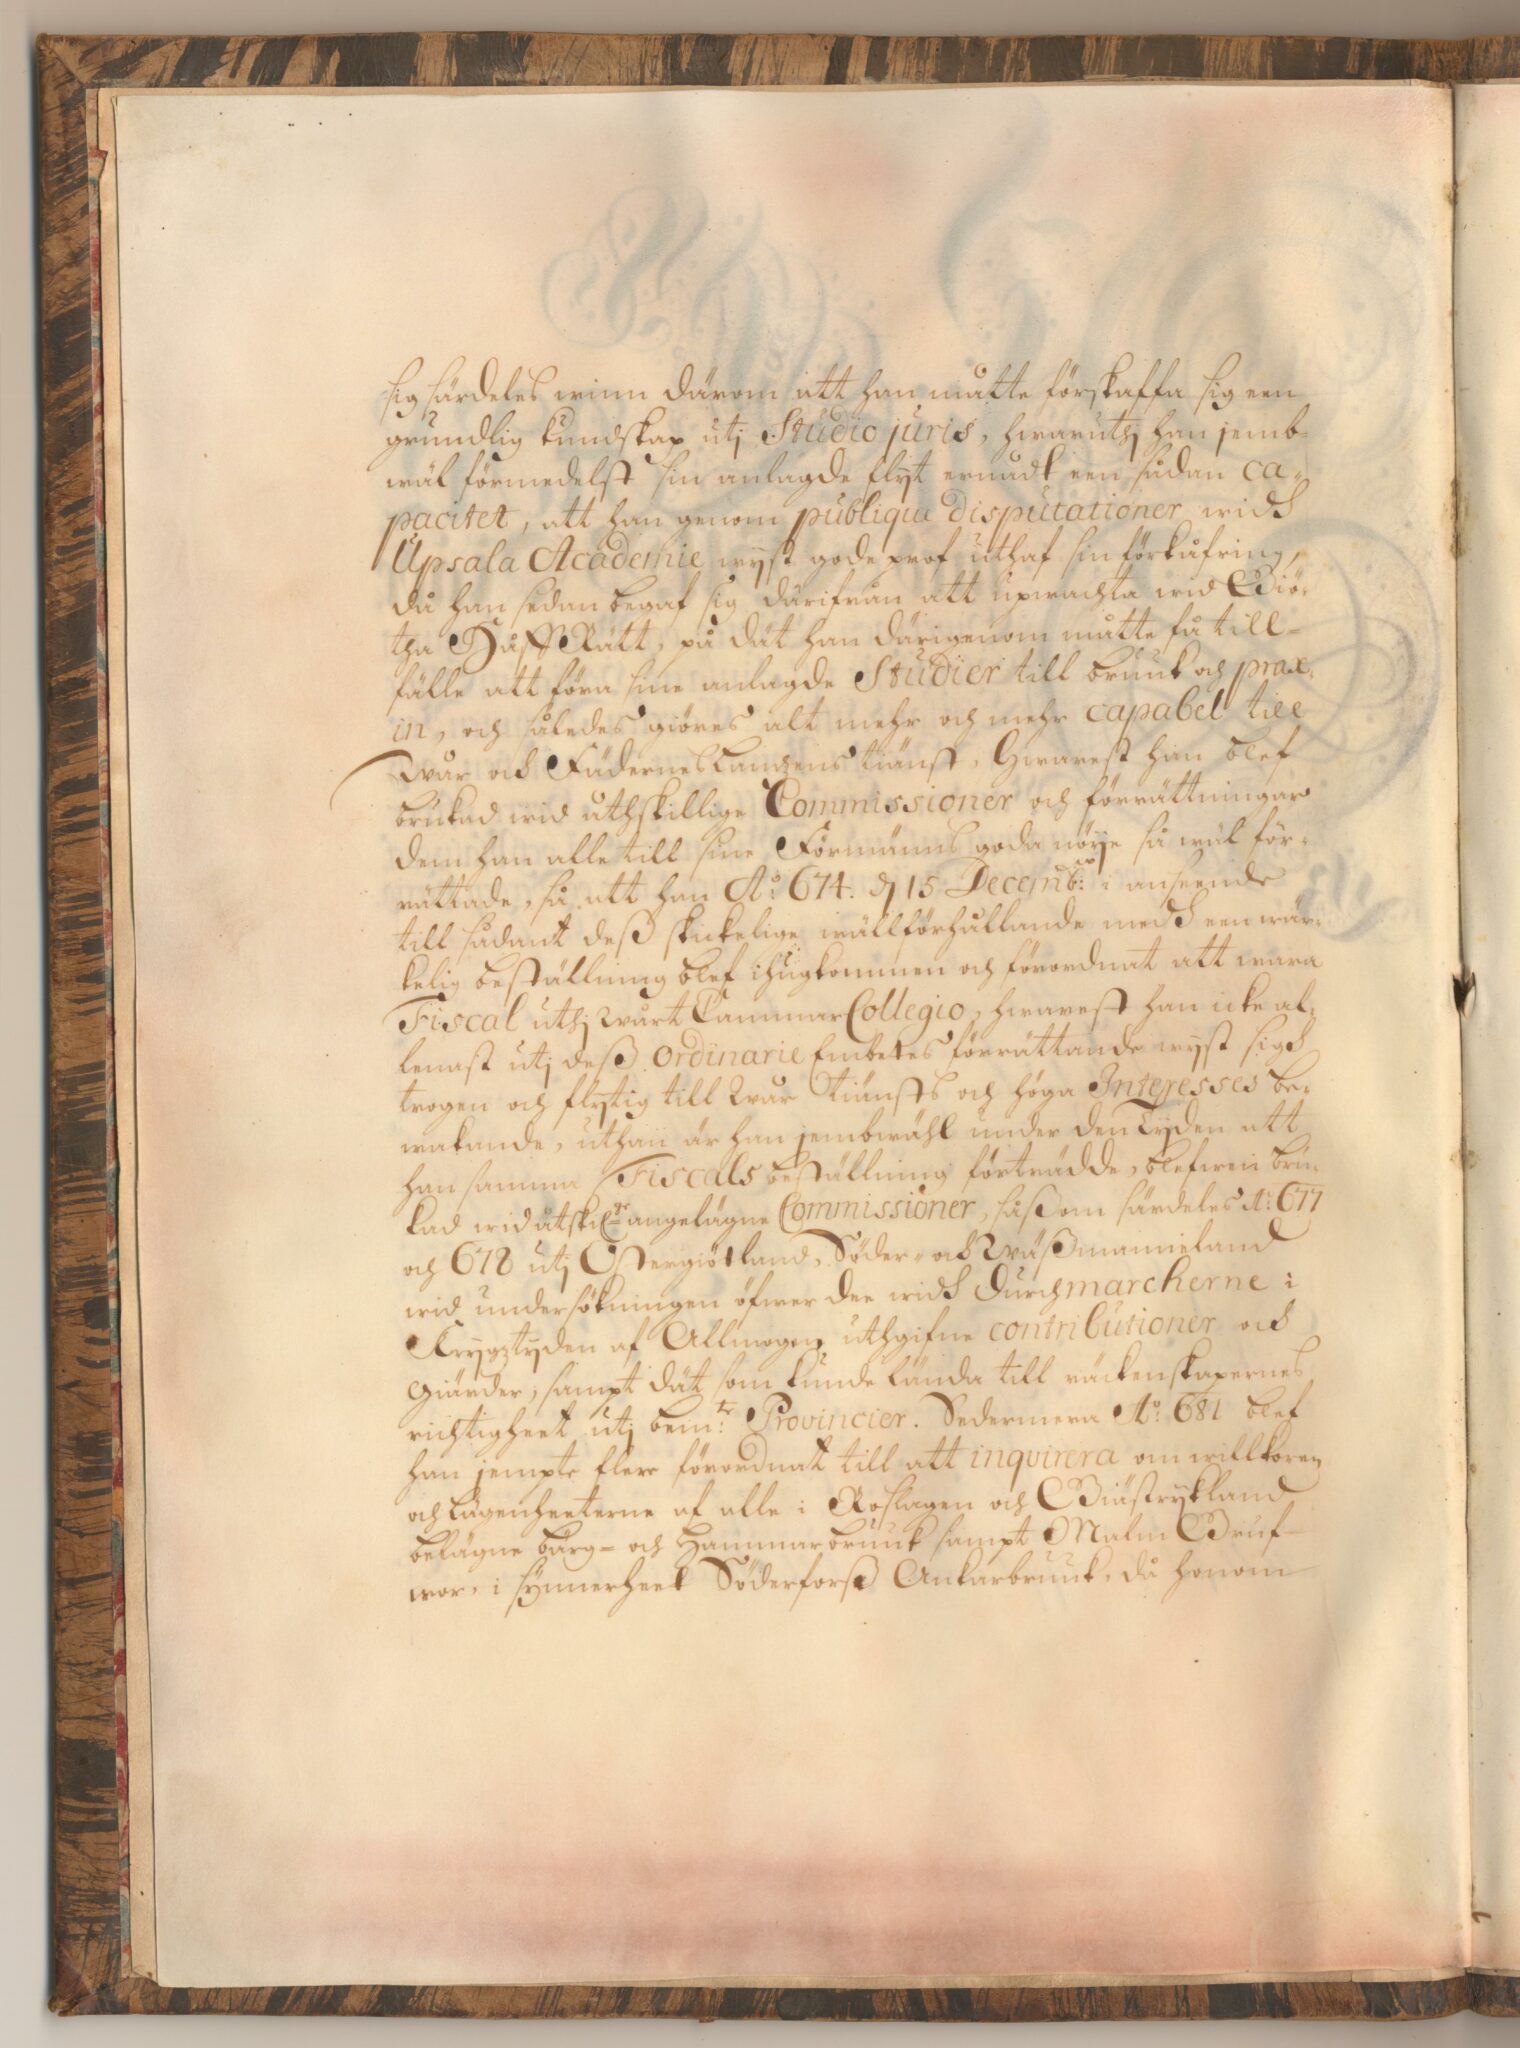 sig särdeles winn därom att han måtte förskaffa sig een
grundlig kundskap utj Studio juris, hwaruthj han jemb-
wäl förmedelst sin anlagde flyt ernådt een sådan ca-
pacitet, att han genom publique disputationer widh
Upsala Academie wyst gode prof uthaf sin förkåfring,
då han sedan begaf sig därifrån att upwachta wid Giö-
tha HåffRätt, på dät han därigenom måtte få till-
fälle att föra sine anlagde Studier till bruuk och prax-
in, och således giöres alt mehr och mehr capabel till
Wår och Fäderneslandzens tiänst, Hwarest han blef
brukad wid uthskillige Commissioner och förrättningar
dem han alle till sine Förmäns goda nöije så wäl för-
rättade, så att han A:o 674. d 15 Decemb: i anseende
till sådant deß skickelige wällförhållande medh een wär-
kelig beställning blef ihugkommen och förordnat att wara
Fiscal uthj Wårt Cammar Collegio, hwarest han icke al-
lenast utj deß ordinarie Embetes förrättande wyst sigh
trogen och flytig till Wår tiänsts och höga Interesses be-
wakande, uthan är han jembwähl under den Tyden att
han samma Fiscals beställning förträdde, blefwen bru-
kad wid åtskil:ge angelägne Commissioner, såßom särdeles A:o 677
och 678 utj Östergiötland, Söder- och Wäßmanneland
wid undersökningen öfwer dee widh Durchmarcherne i
Krygztyden af Allmogen uthgifne contributioner och
Giärder, sampt dät som kunde lända till räckenskapernes
richtigheet utj bem:te Provincier. Sedermera A:o 681 blef
han jempte flere förordnat till att inqvirera om willkoren
och lägenheeterne af alle i Roslagen och Giästrykland
belägne bärg- och Hammarbruuk sampt Malm Gruf-
wor, i synnerheet Söderforß Ankarbruuk, då honom